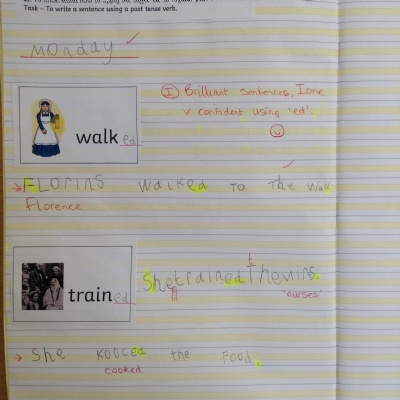 Task - To write a sentence using a past tense verb.
monday
I Brilliant sentences, Ione
v confident using 'ed'.
walked
FLorins walked To The Wak
Florence
trained
She trained Thenirs.
'nurses'
She Kooced the Food.
cooked